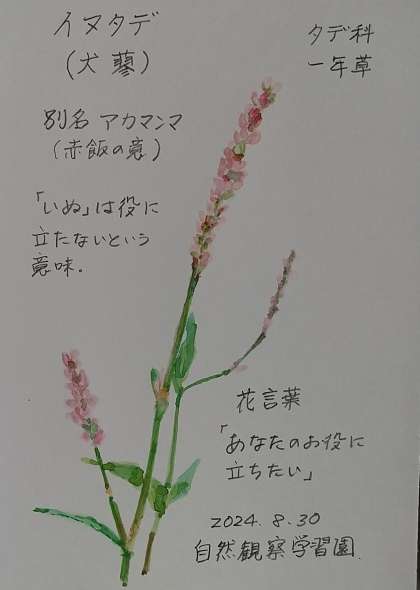 イヌタデ
(犬蓼)
タデ科
一年草
別名 アカマンマ
(赤飯の意)
「いぬ」は役に
立たないという
意味.
花言葉
「あなたのお役に
立ちたい」
2024.8.30
自然観察学習園.